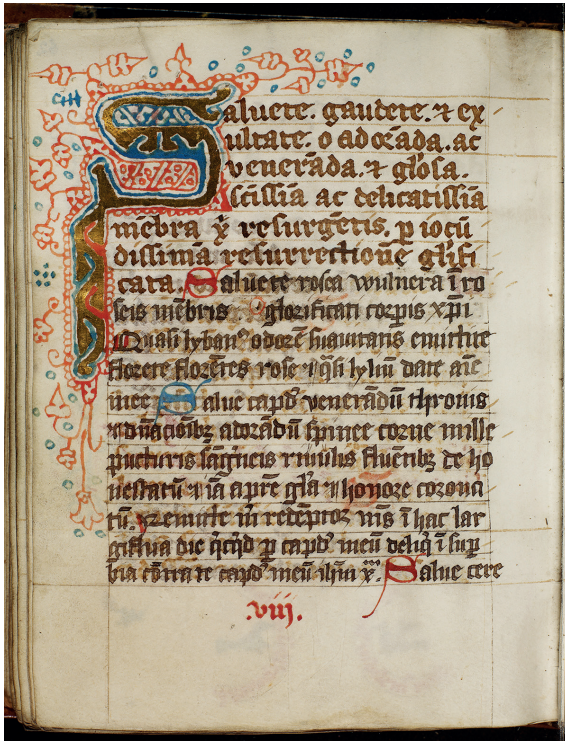 Saluete. gaudete. ⁊ ex
ultate. o adorãda. ac
venerãda. ⁊ gl'osa.
Sc̃issĩa ac delicatissĩa
mẽbra xp̃i resurgẽtis. p̲ iocũ
dissimã resurrectionẽ gl'ifi
cata. Saluete rosea wulnera ĩ ro
seis mẽbris glorificati corp̲is xp̃i
Quasi lyban⁹ odorẽ suauitatis emittite
florete florẽtes rose ⁊ q̃si lyliũ date aĩe
mee Salue capd' venerãdũ thronis
⁊ dñac̃oĩbꝫ adorãdũ spinee corone mille
pũcturis sãgneis riuulis fluẽtibꝫ de ho
nestatũ ⁊ iã a pr̃e gl'a ⁊ honore corona
tũ. remitte m̃ redẽptor ĩ hac lar
giflua die q̃cq̃d p̲ capd' meũ deliq̃ ĩ sup̲
bia cõtra te capd' meũ Salue cere
.viij.